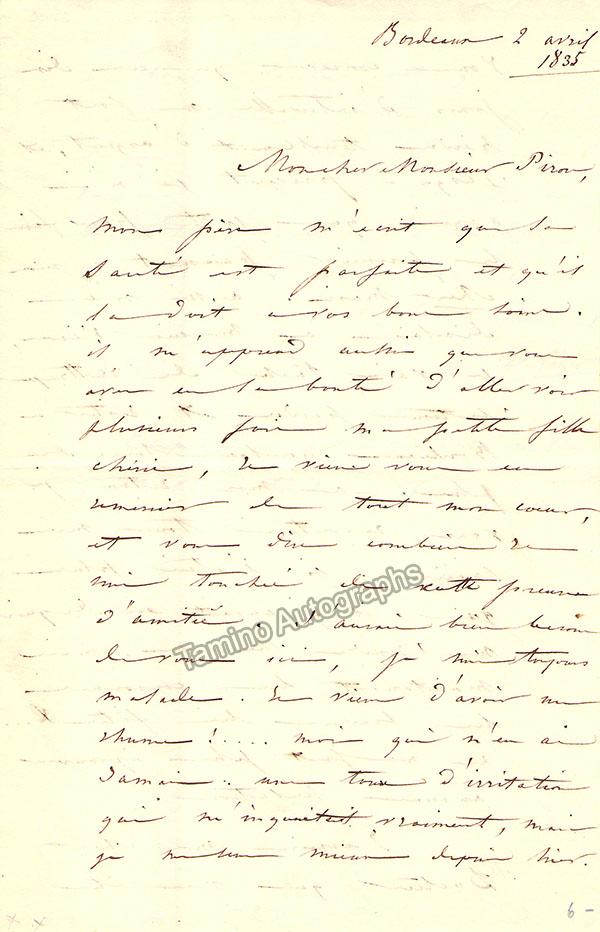 Bordeaux 2 avril
1835
Mon cher Monsieur Pirou,
Mon père m'écrit que sa
santé est parfaite et qu'il
la doit à vos bons soins.
il m'apprend aussi que vous
avez eu la bonté d'aller voir
plusieurs fois ma petite fille
chérie, Je viens vous en
remercier de tout mon coeur,
et vous dire combien Je
suis touchée de cette preuve
d'amitié. J'aurais bien besoin
de vous ici, je suis toujours
malade. Je viens d'avoir un
rhume !.... moi qui n'en ai
Jamais.. une toux d'irritation
qui m'inquiétait vraiment, mais
je me sens mieux depuis hier.
Tamino Autographs
6 -